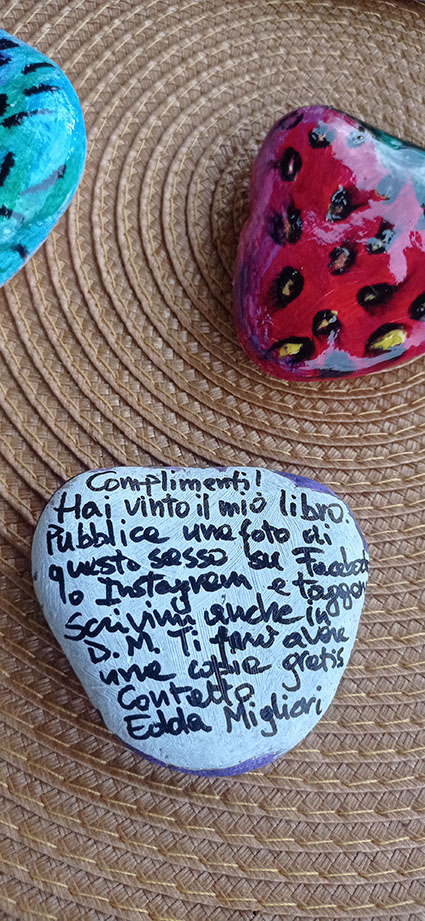 Complimenti!
Hai vinto il mio libro.
Pubblica una foto di
questo sasso su Facebook
o Instagram e taggami
Scrivimi anche in
D.M. Ti farò avere
una copia gratis
Contatto
Edda Migliori